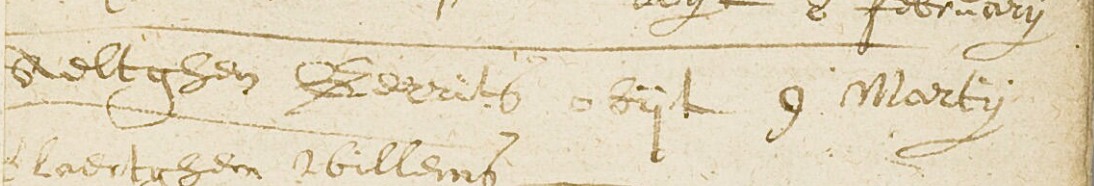 obijt 8 february
Aeltghen Gerrits obijt 9 Martij
Claertghen Willems